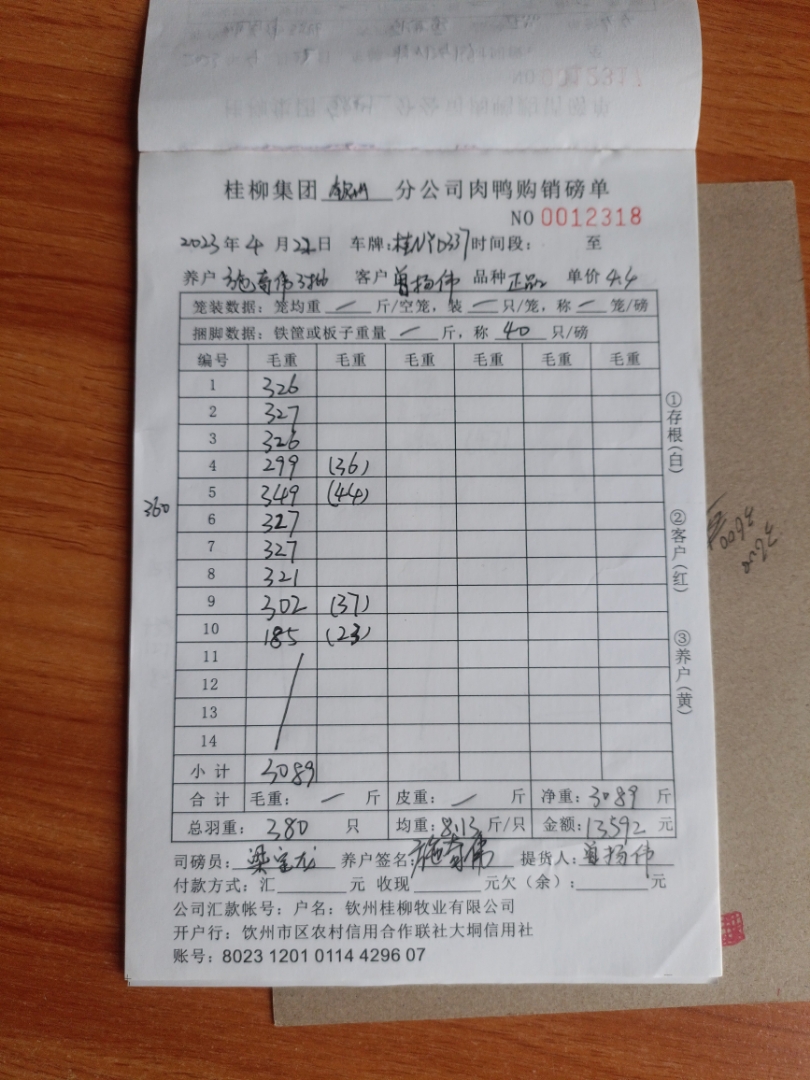 桂柳集团 钦州 分公司肉鸭购销磅单
NO 0012318
2023年4月22日 车牌:桂NYD337时间段: 至
养户 施奇伟3批 客户 曾扬伟 品种 正品 单价 4.4
笼装数据:笼均重 — 斤/空笼,装 — 只/笼,称 — 笼/磅
捆脚数据:铁筐或板子重量 — 斤,称 40 只/磅
编号 毛重 毛重 毛重 毛重 毛重 毛重
1 326
2 327
3 326
4 299 (36)
5 349 (44)
360
6 327
7 327
8 321
9 302 (37)
10 185 (23)
11
12
13
14
小计 3089
合计 毛重: — 斤 皮重: — 斤 净重:3089 斤
总羽重: 380 只 均重:8.13 斤/只 金额:13592 元
①存根(白)
②客户(红)
③养户(黄)
司磅员: 梁宝龙 养户签名: 施奇伟 提货人: 曾扬伟
付款方式:汇 元 收现 元欠(余): 元
公司汇款帐号:户名:钦州桂柳牧业有限公司
开户行:钦州市区农村信用合作联社大垌信用社
账号:8023 1201 0114 4296 07